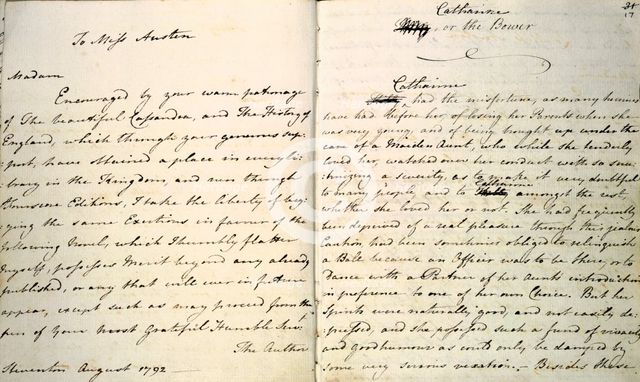 To Miss Austen
Madam
Encouraged by your warm patronage
of The beautiful Cassandra, and The History of
England, which through your generous sup-
port, have obtained a place in every li-
brary in the Kingdom, and run through
threescore Editions, I take the liberty of beg-
ging the same Exertions in favour of the
following Novel, which I humbly flatter
myself, possesses Merit beyond any already
published, or any that will ever in future
appear, except such as may proceed from the
pen of your Most Grateful Humble Serv.
The Author
Steventon August 1792 —
31
17
Catharine
or the Bower
Catharine
had the misfortune, as many heroines
have had before her, of losing her Parents when she
was very young, and of being brought up under the
care of a Maiden Aunt, who while she tenderly
loved her, watched over her conduct with so scru-
tinizing a severity, as to make it very doubtful
to many people, and to Catharine amongst the rest,
whether she loved her or not. She had frequently
been deprived of a real pleasure through this jealous
Caution, had been sometimes obliged to relinquish
a Ball because an Officer was to be there, or to
Dance with a Partner of her Aunts introduction
in preference to one of her own Choice. But her
Spirits were naturally good, and not easily de-
pressed, and she possessed such a fund of vivacity
and good humour as could only be damped by
some very serious vexation. — Besides these